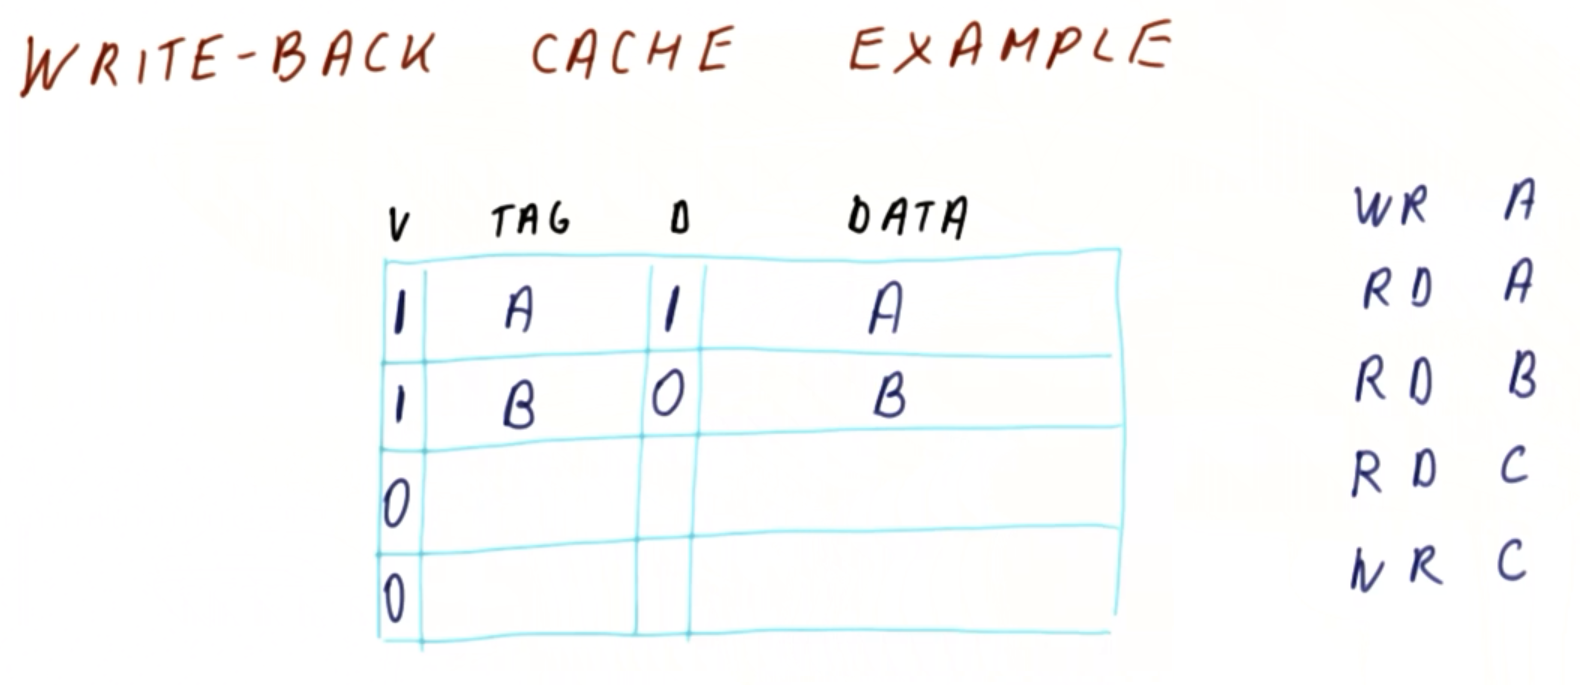 WRITE-BACK CACHE EXAMPLE
V TAG D DATA
1 A 1 A
1 B 0 B
0
0
WR A
RD A
RD B
RD C
WR C